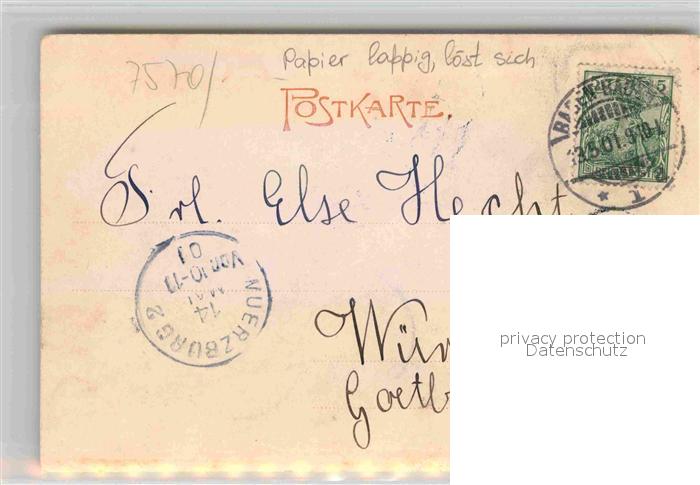 7570/-
Papier lappig, löst sich
POSTKARTE.
BADEN-BADEN
13.5.01.9-10V.
* 1
5
Frl. Else Hecht
WUERZBURG 2
14
MAI
VOR 10-11
01
Wür
Goeth
privacy protection
Datenschutz